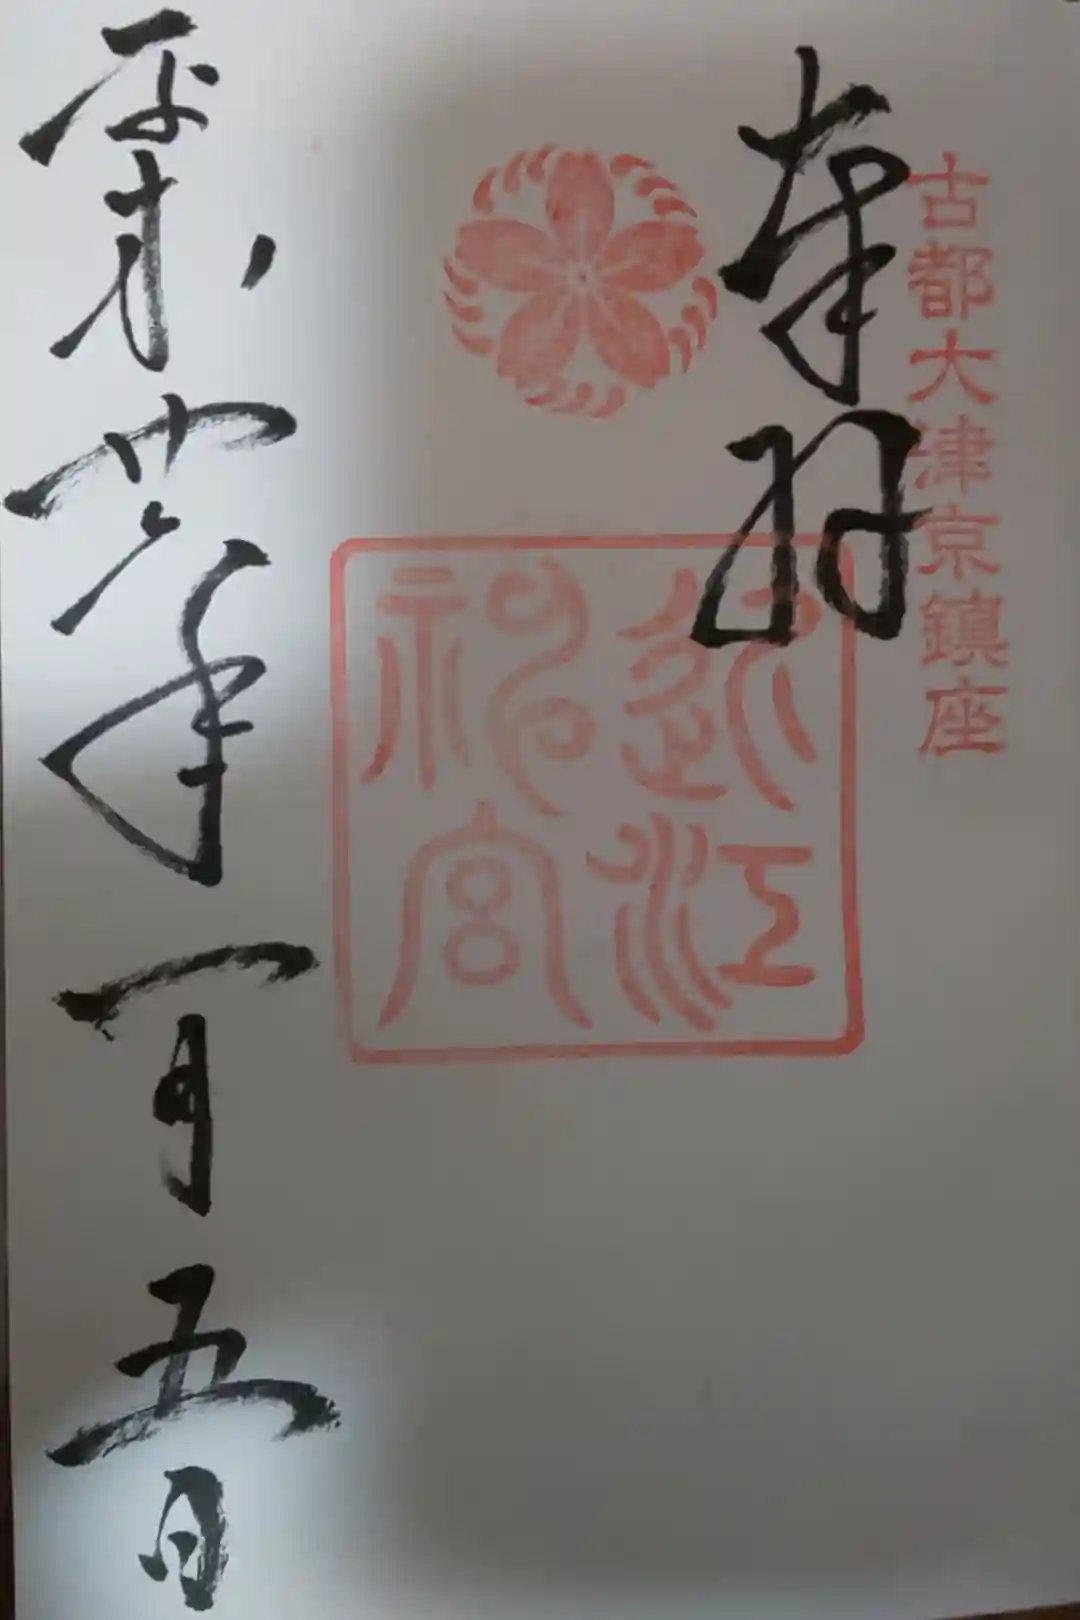 古都大津京鎮座
奉拝
近江神宮
平成廿六年一月五日